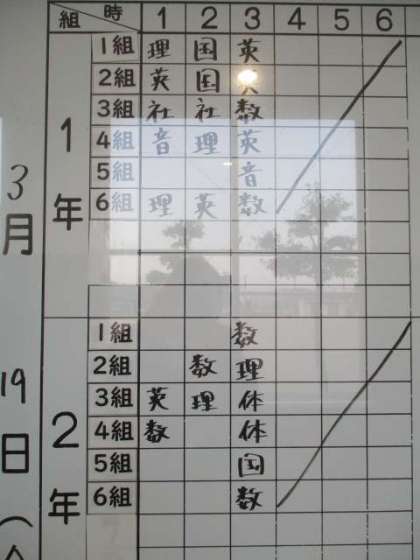 組 時 1 2 3 4 5 6
3月
19日
(
1年
1組 理 国 英
2組 英 国
3組 社 社 数
4組 音 理 英
5組 音
6組 理 英 数
2年
1組 数
2組 数 理
3組 英 理 体
4組 数 体
5組 国
6組 数